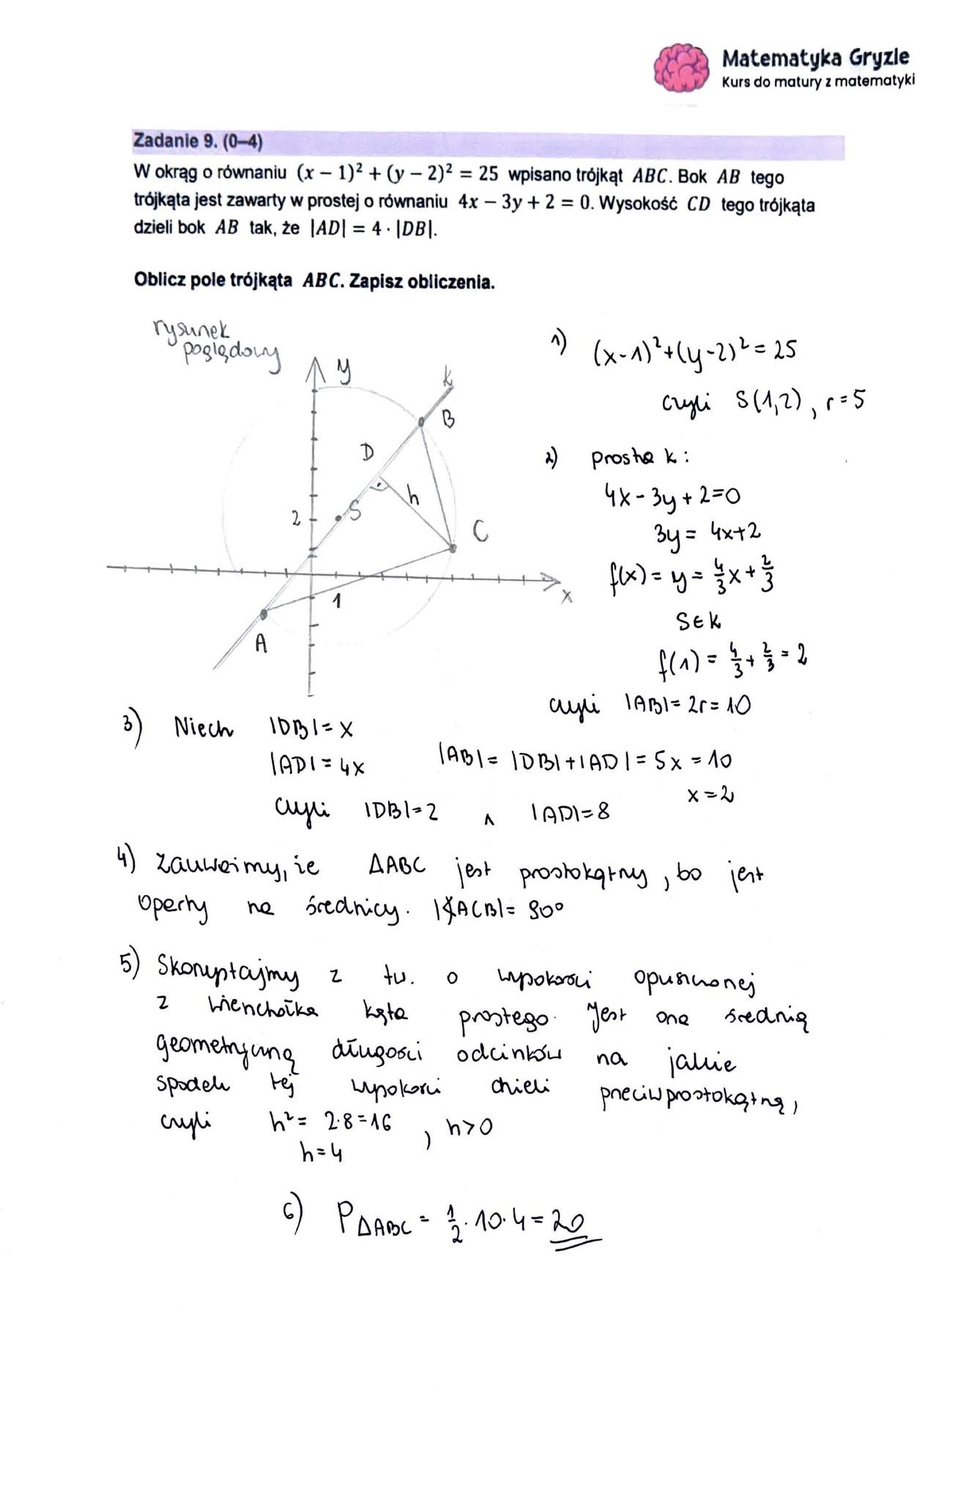 Matematyka Gryzie
Kurs do matury z matematyki
Zadanie 9. (0–4)
W okrąg o równaniu (x − 1)² + (y − 2)² = 25 wpisano trójkąt ABC. Bok AB tego
trójkąta jest zawarty w prostej o równaniu 4x − 3y + 2 = 0. Wysokość CD tego trójkąta
dzieli bok AB tak, że |AD| = 4 · |DB|.
Oblicz pole trójkąta ABC. Zapisz obliczenia.
rysunek
poglądowy
y
k
B
D
h
S
2
C
x
1
A
1) (x-1)²+(y-2)²=25
czyli S(1,2), r=5
2) prosta k:
4x-3y+2=0
3y= 4x+2
f(x)=y= 4/3x+2/3
S∈k
f(1)= 4/3+2/3=2
czyli |AB|=2r=10
3) Niech |DB|=x
|AD|=4x |AB|= |DB|+|AD|=5x=10
x=2
czyli |DB|=2 ∧ |AD|=8
4) Zauważmy, że ΔABC jest prostokątny, bo jest
oparty na średnicy. |∢ACB|= 90°
5) Skorzystajmy z tw. o wysokości opuszczonej
z wierzchołka kąta prostego. Jest ona średnią
geometryczną długości odcinków na jakie
spodek tej wysokości dzieli przeciwprostokątną,
czyli h²= 2·8=16 , h>0
h=4
6) PΔABC= 1/2·10·4=20